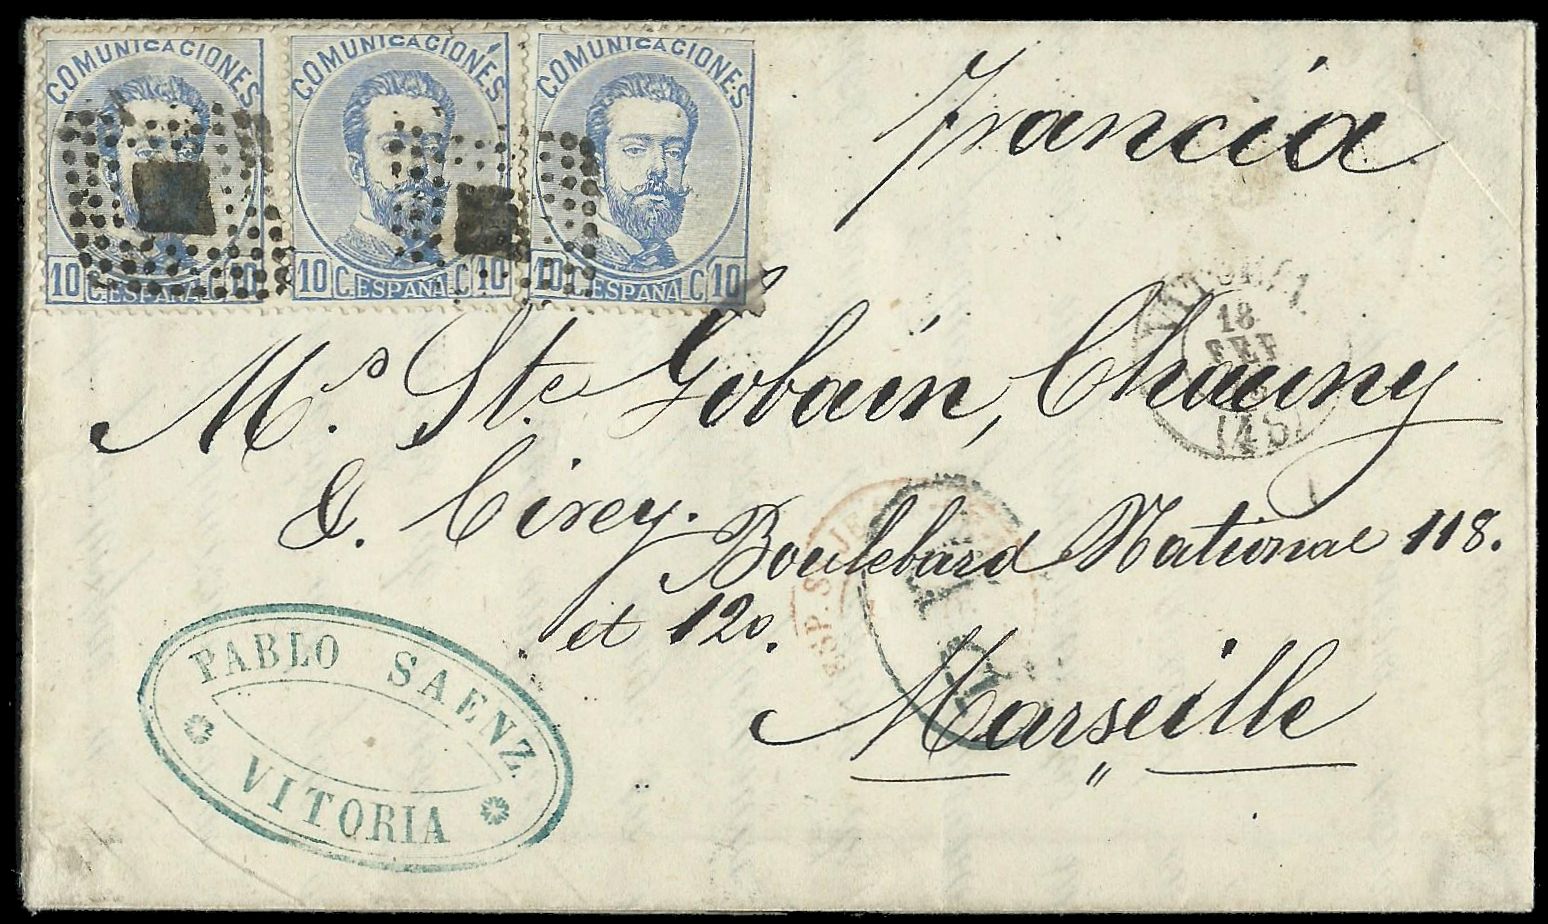 COMUNICACIONES
10 C. ESPAÑA C 10
COMUNICACIONES
10 C. ESPAÑA C 10
COMUNICACIONES
10 C. ESPAÑA C 10
Francia
VITORIA
18
FEB
(48)
M.s Ste Gobain, Chauny
& Cirey.
Boulebard National 118.
et 120.
Marseille
ESP. ST JE
PABLO SAENZ
VITORIA